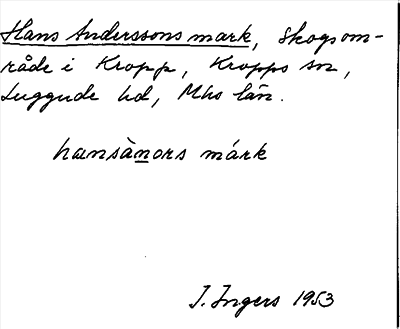 Hans Anderssons mark, skogsom-
råde i Kropp, Kropps sn,
Luggude hd, Mhs län.
hænsànors márk
I. Ingers 1953